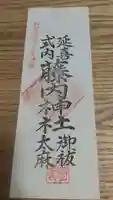 延喜式内
藤内神社
御祓
大麻